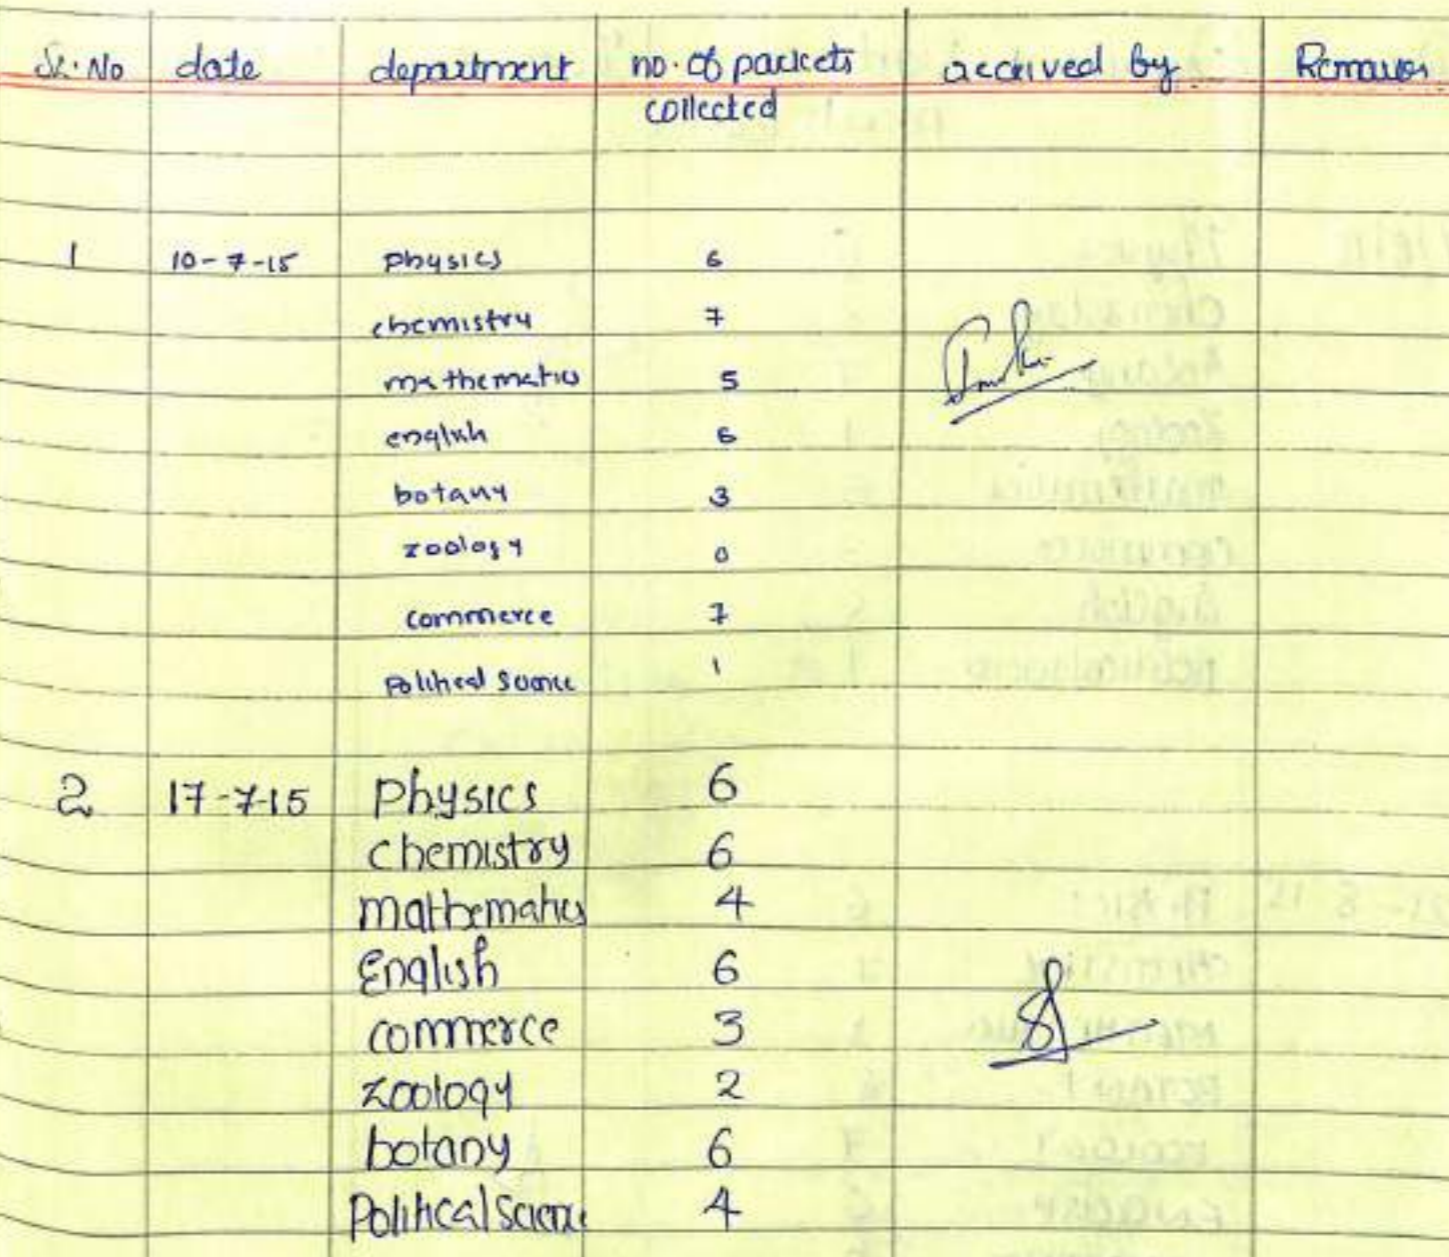 Sr. No date department no. of packets received by Remarks
collected
1 10-7-15 physics 6
chemistry 7
mathematics 5
english 6
botany 3
zoology 0
commerce 7
Political Science 1
2 17-7-15 Physics 6
chemistry 6
mathematics 4
English 6
commerce 3
zoology 2
botany 6
Political Science 4